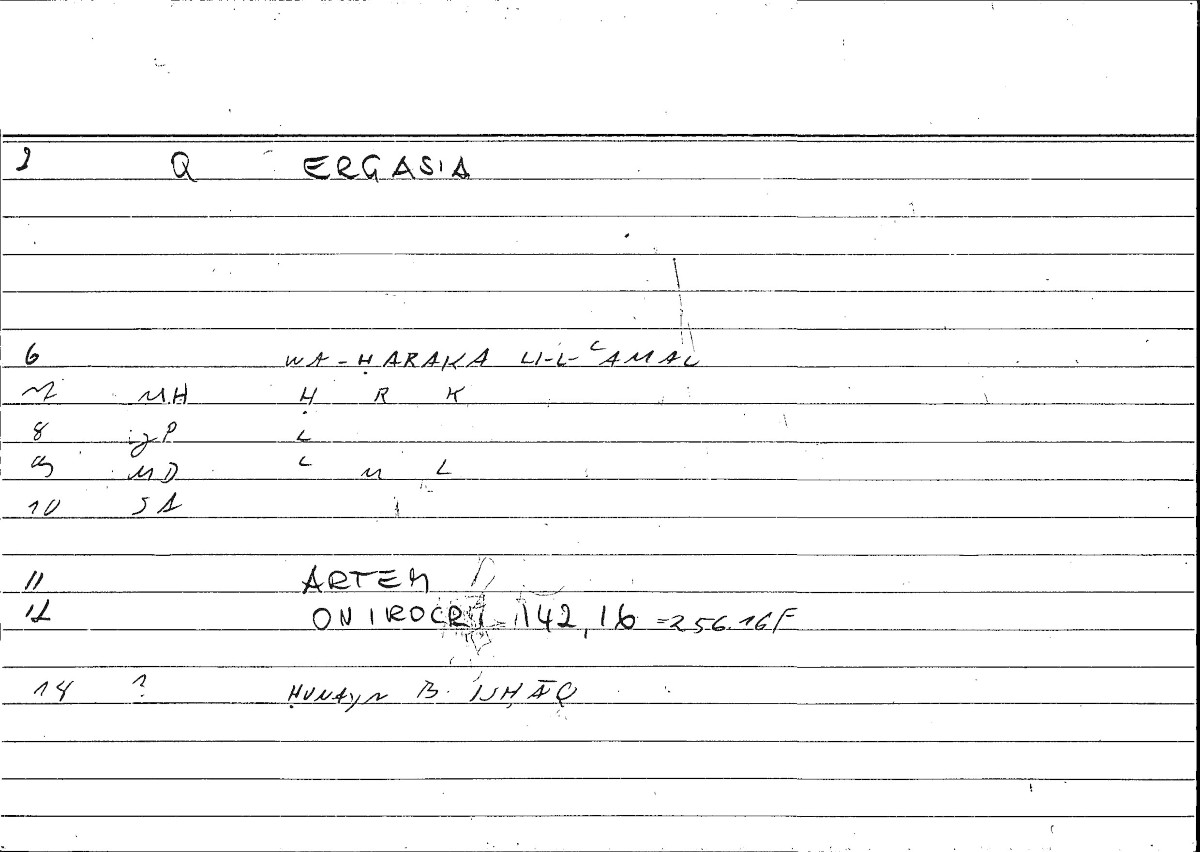 2 Q ERGASIA
6 WA-ḤARAKA LI-L-ʿAMAL
7 MH Ḥ R K
8 P L
9 MD ʿ M L
10 SA
11 ARTEM
12 ONIROCR. 142,16 =256.16F
14 ? ḤUNAYN B. ISḤĀQ